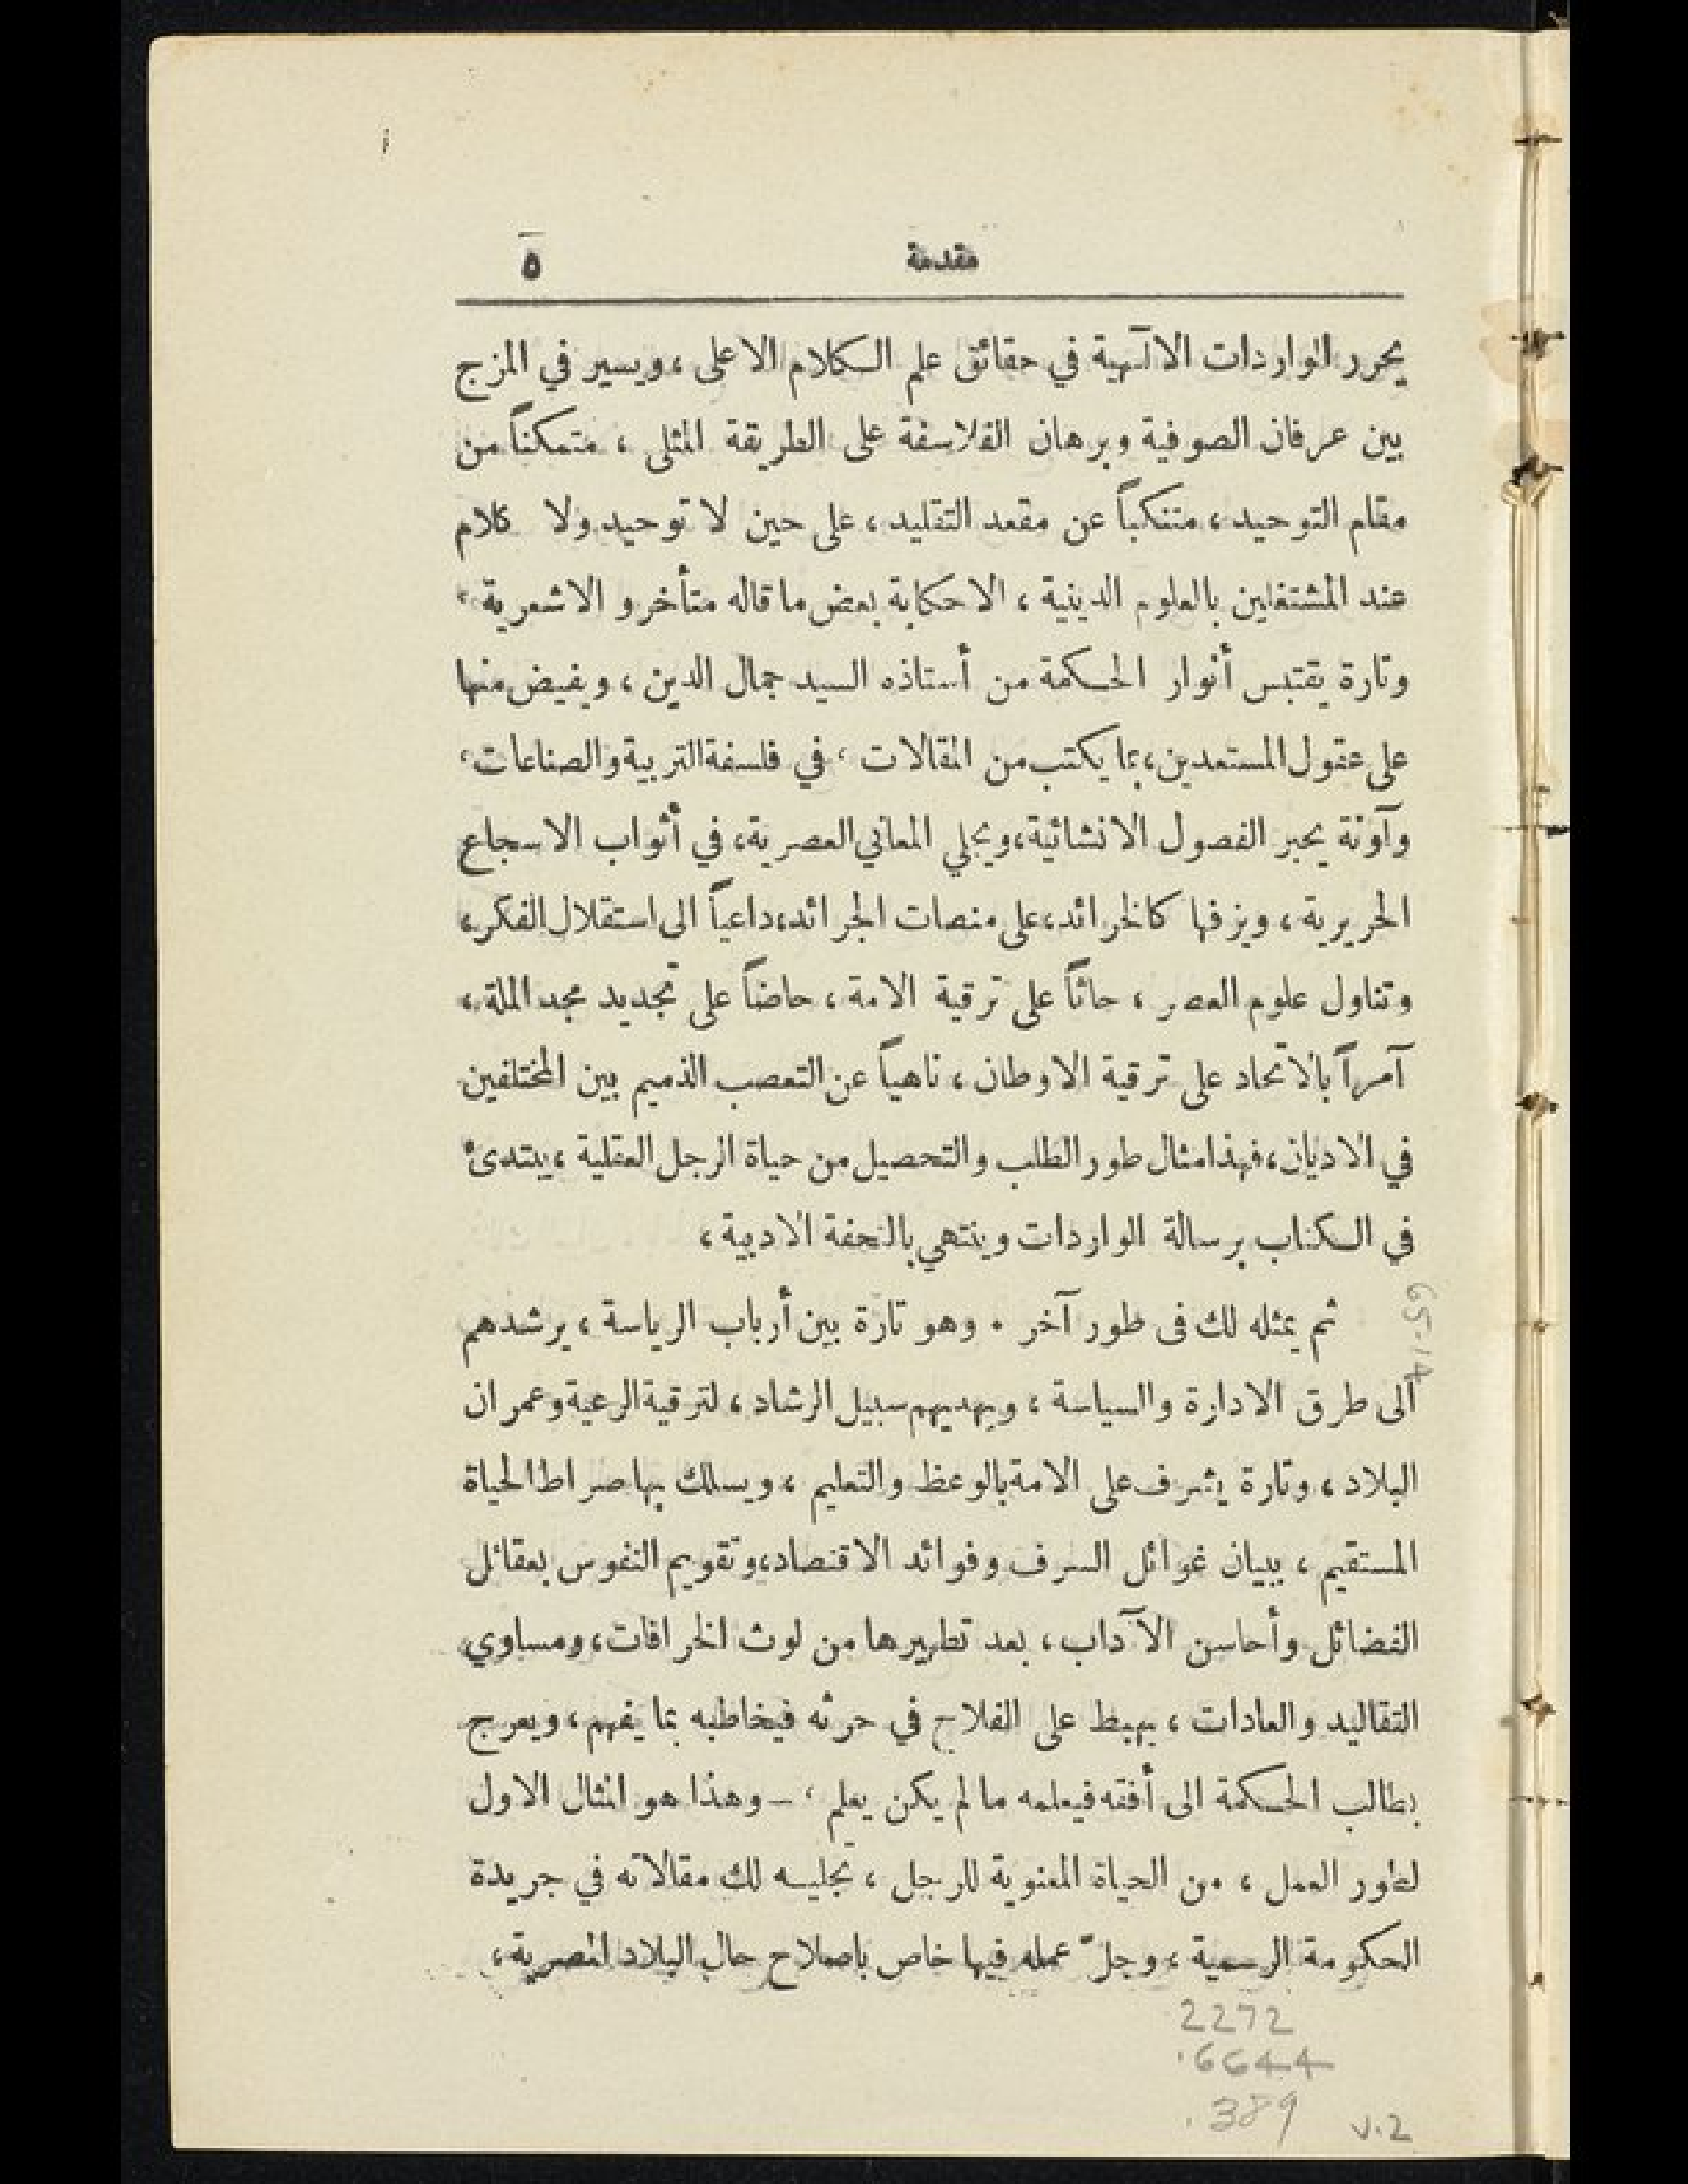 مقدمة ٥
يحرر الواردات الالٓهية في حقائق علم الكلام الاعلى ، ويسير في المزج
بين عرفان الصوفية وبرهان الفلاسفة على الطريقة المثلى ، متمكناً من
مقام التوحيد ، متنكباً عن مقعد التقليد ، على حين لا توحيد ولا كلام
عند المشتغلين بالعلوم الدينية ، الا حكاية بعض ما قاله متأخرو الاشعرية ،
وتارة يقتبس أنوار الحكمة من أستاذه السيد جمال الدين ، ويفيض منها
على عقول المستعدين ، بما يكتب من المقالات ، في فلسفة التربية والصناعات ،
وآونة يحبر الفصول الانشائية ، ويجلي المعاني العصرية ، في أثواب الاسجاع
الحريرية ، ويزفها كالخرائد ، على منصات الجرائد ، داعياً الى استقلال الفكر ،
وتناول علوم العصر ، حاثاً على ترقية الامة ، حاضاً على تجديد مجد الملة ،
آمراً بالاتحاد على ترقية الاوطان ، ناهياً عن التعصب الذميم بين المختلفين
في الاديان ، فهذا مثال طور الطلب والتحصيل من حياة الرجل العقلية ، يبتدئ
في الكتاب برسالة الواردات وينتهي بالتحفة الادبية ،
ثم يمثله لك فى طور آخر . وهو تارة بين أرباب الرياسة ، يرشدهم
الى طرق الادارة والسياسة ، ويهديهم سبيل الرشاد ، لترقية الرعية وعمران
البلاد ، وتارة يشرف على الامة بالوعظ والتعليم ، ويسلك بها صراط الحياة
المستقيم ، ببيان غوائل السرف وفوائد الاقتصاد ، وتقويم النفوس بعقائل
الفضائل وأحاسن الآداب ، بعد تطهيرها من لوث الخرافات ، ومساوي
التقاليد والعادات ، يهبط على الفلاح في حرثه فيخاطبه بما يفهم ، ويعرج
بطالب الحكمة الى أفقه فيعلمه ما لم يكن يعلم ، – وهذا هو المثال الاول
لطور العمل ، من الحياة المعنوية للرجل ، تجليه لك مقالاته في جريدة
الحكومة الرسمية ، وجلّ عمله فيها خاص باصلاح حال البلاد المصرية ،
2272
.6644
.389
v.2